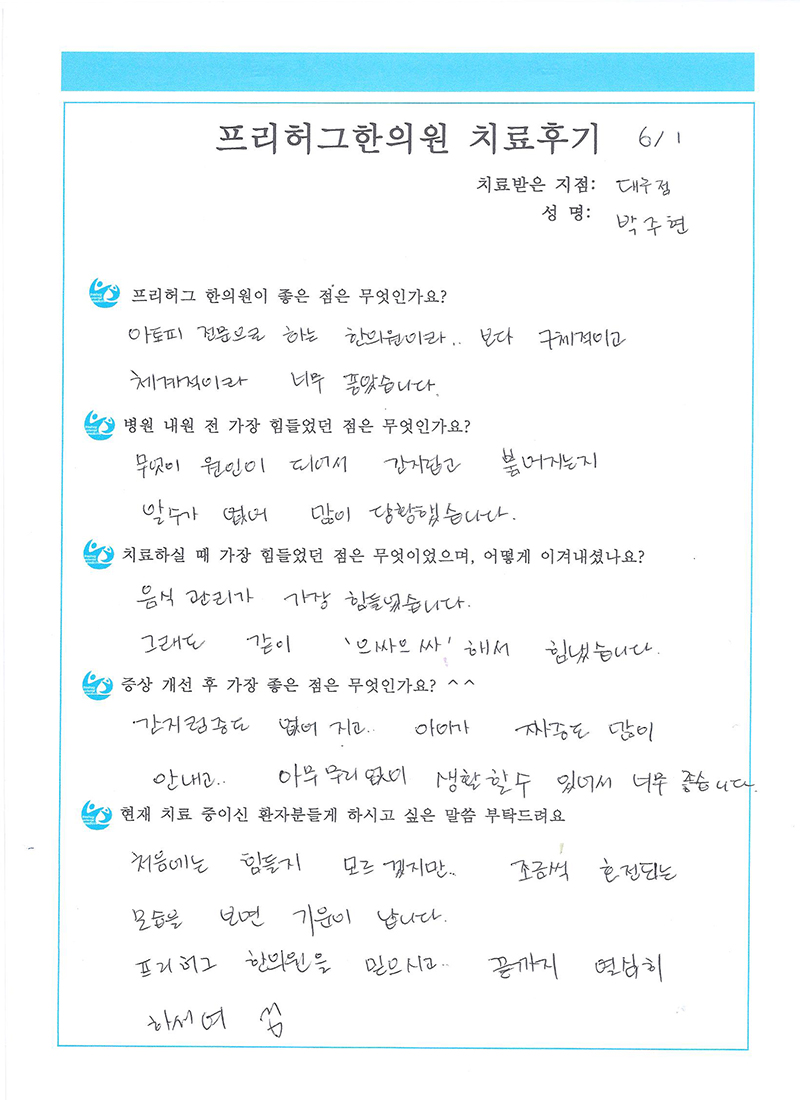 프리허그한의원 치료후기 6/1
치료받은 지점: 대구점
성 명: 박주현
프리허그 한의원이 좋은 점은 무엇인가요?
아토피 전문으로 하는 한의원이라.. 보다 구체적이고
체계적이라 너무 좋았습니다.
병원 내원 전 가장 힘들었던 점은 무엇인가요?
무엇이 원인이 되어서 간지럽고 붉어지는지
알수가 없어 많이 당황했습니다.
치료하실 때 가장 힘들었던 점은 무엇이었으며, 어떻게 이겨내셨나요?
음식 관리가 가장 힘들었습니다.
그래도 같이 '으싸으싸' 해서 힘냈습니다.
증상 개선 후 가장 좋은 점은 무엇인가요? ^^
간지럼증도 없어 지고.. 아이가 짜증도 많이
안내고.. 아무 무리 없이 생활할수 있어서 너무 좋습니다.
현재 치료 중이신 환자분들게 하시고 싶은 말씀 부탁드려요
처음에는 힘들지 모르겠지만.. 조금씩 호전되는
모습을 보면 기운이 납니다.
프리허그 한의원을 믿으시고.. 끝까지 열심히
하세여